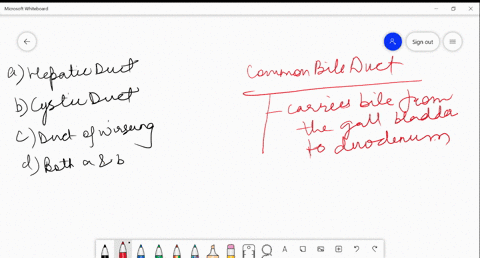 Microsoft Whiteboard
Sign out
a) Hepatic Duct
b) Cystic Duct
c) Duct of wirsung
d) Both a & b
Common Bile Duct
carries bile from
the gall bladder
to duodenum